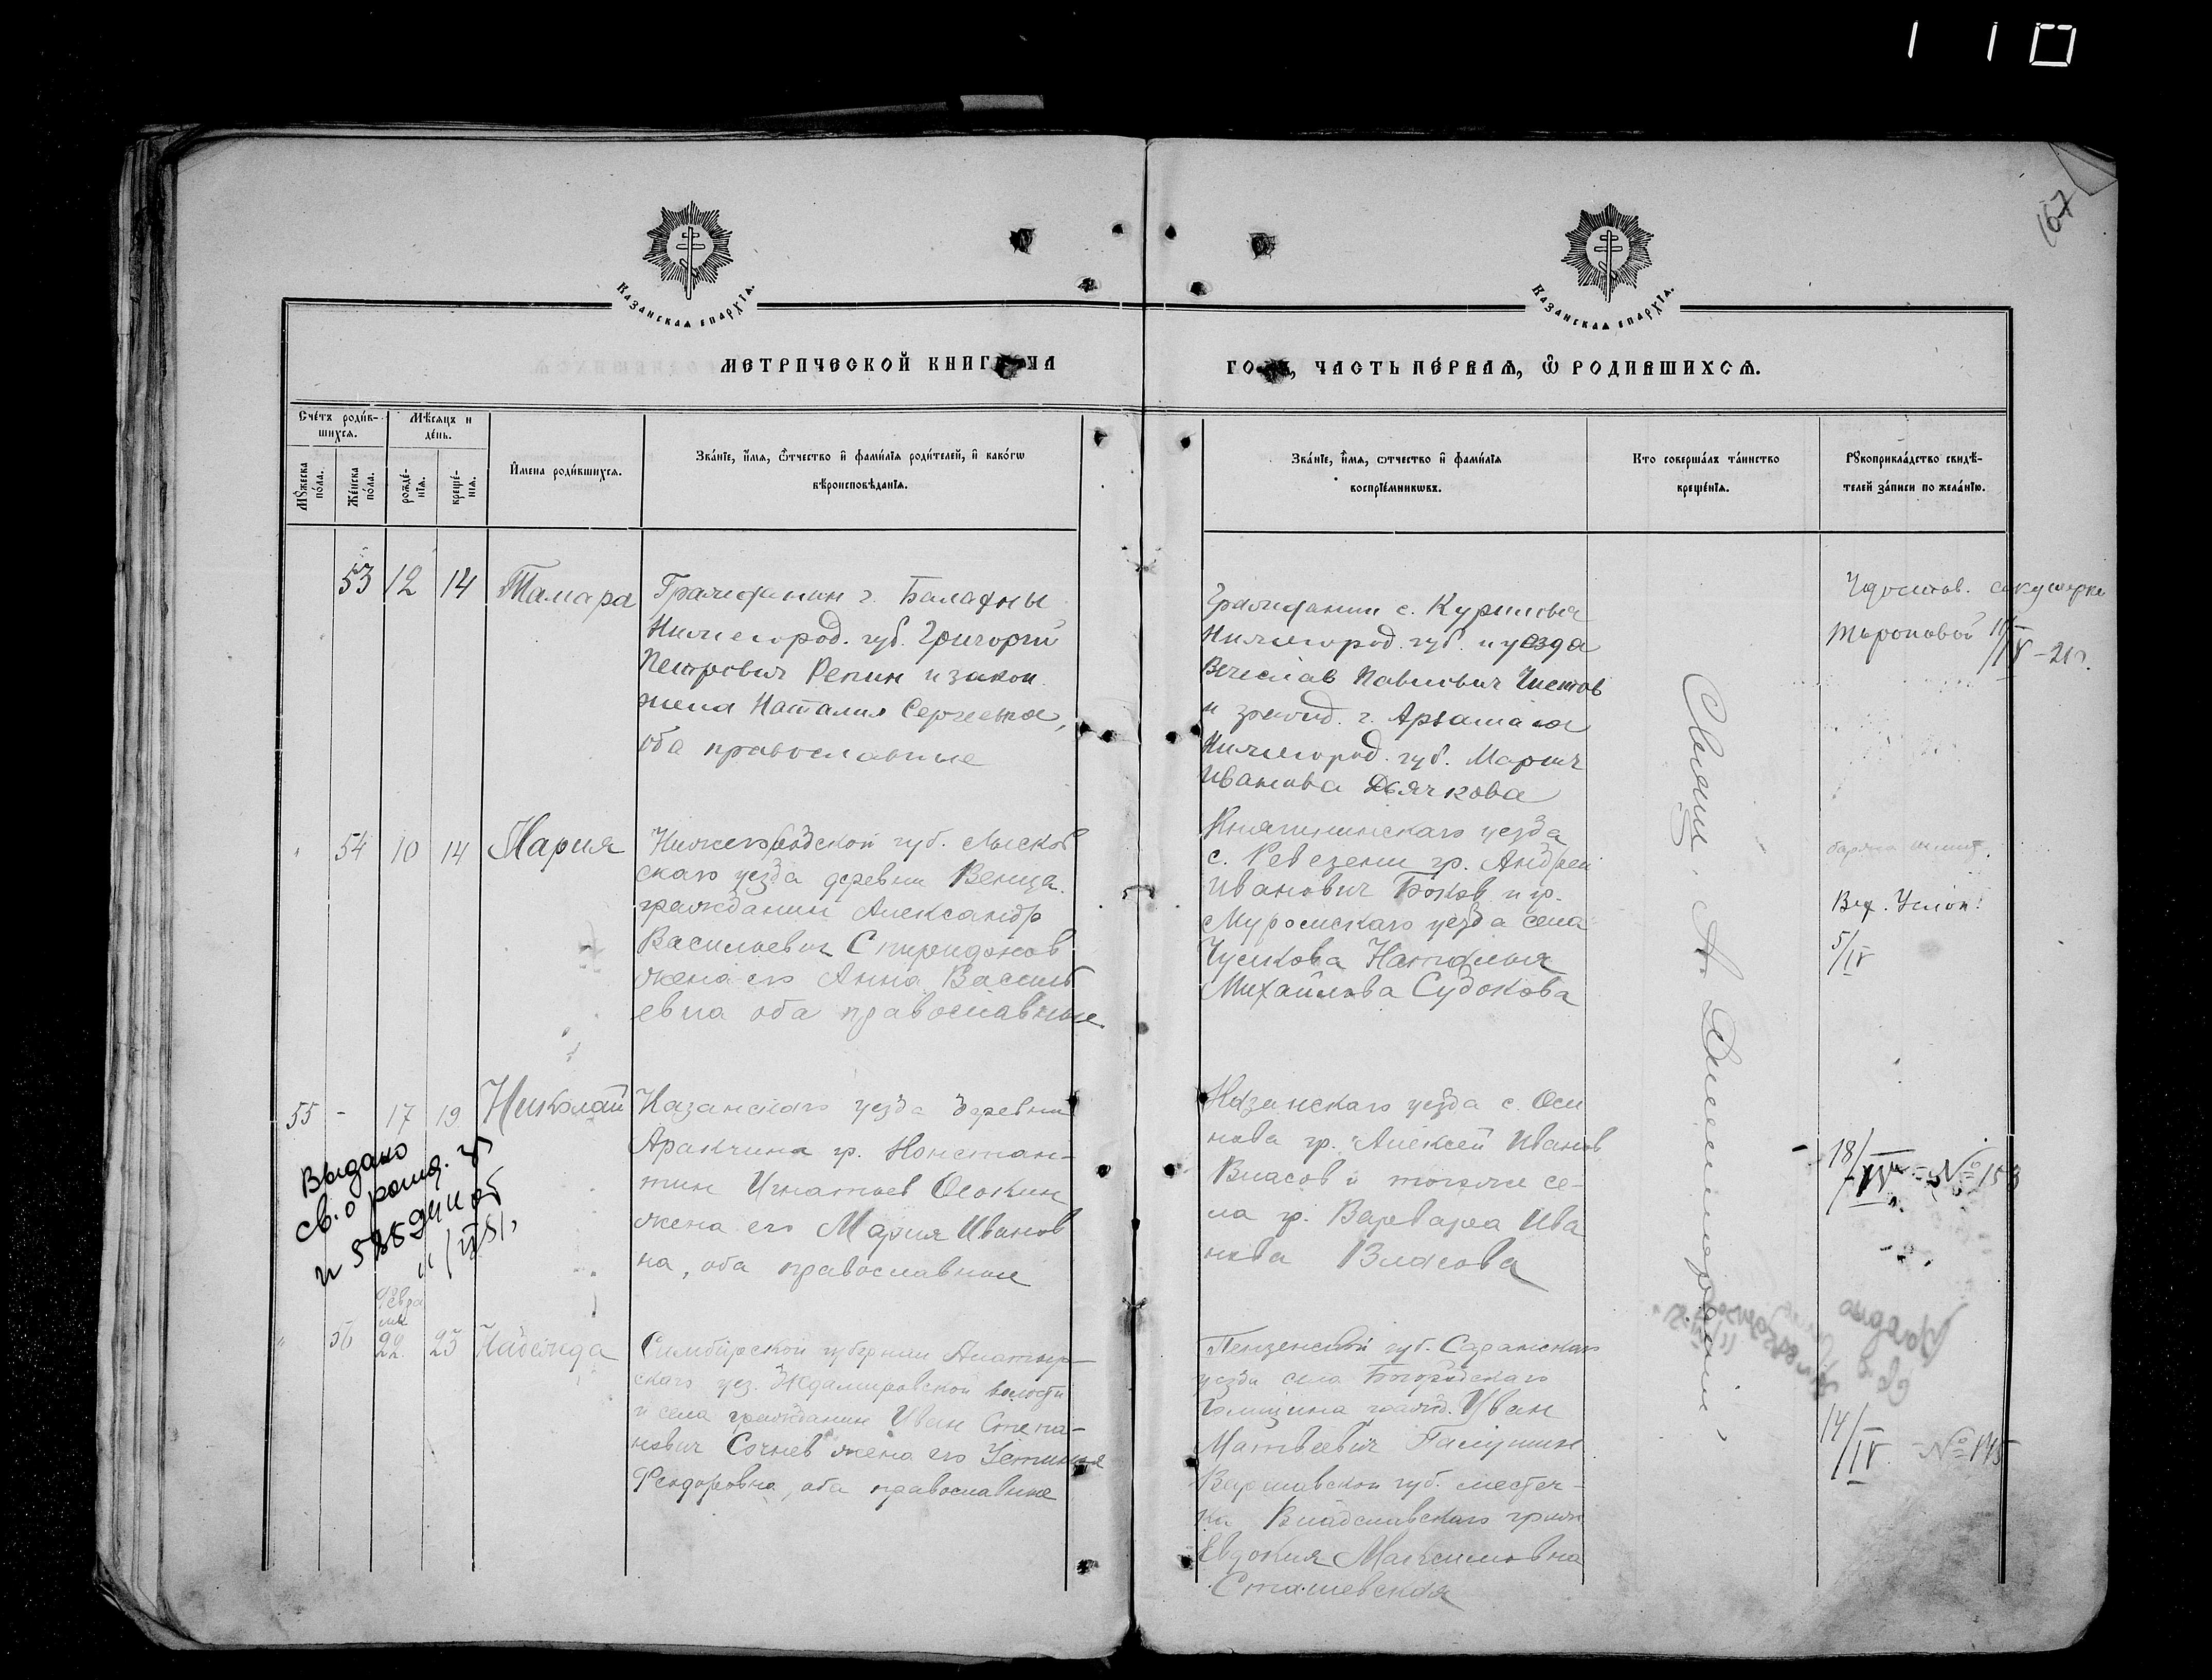 110
167
Казанская епархїѧ.
Казанская епархїѧ.
МЕТРИЧЕСКОЙ КНИГИ НА
ГОДЪ, ЧАСТЬ ПЕ́РВАѦ, Ѽ РОДИВШИХСѦ.
Сче́тъ роди́в-
шихсѧ.
Мѣсѧцъ и
де́нь.
Мꙋ́жеска
по́ла.
Же́нска
по́ла.
рожде́-
нїѧ.
креще́-
нїѧ.
И҆мена роди́вшихсѧ.
Зва́нїе, и҆́мѧ, ѻ҆́тчество и҆ фами́лїѧ роди́телей, и҆ како́гѡ
вѣроисповѣ́данїѧ.
Зва́нїе, и҆́мѧ, ѻтчество и҆ фами́лїѧ
воспрїе́мникѡвъ.
Кто соверша́лъ та́инство
креще́нїѧ.
Рꙋкоприкла́дство свидѣ́-
телей за́писи по жела́нїю.
53 12 14 Тамара
Гражданин г. Балахны
Нижегород. губ. Григорий
Петрович Репин и закон.
жена Наталия Сергеевна,
оба православные
Гражданин с. Курмыша
Нижегород. губ. и уезда
Вячеслав Павлович Чистов
и гражд. г. Арзамаса
Нижегород. губ. Мария
Иванова Дьячкова
Удостов. акушерки
10/IV – 21 г.
54 10 14 Мария
Нижегородской губ. Лысков
скаго уезда деревни Венца
гражданин Александр
Васильевич Спиридонов
жена его Анна Василь
евна оба православные.
Княгининскаго уезда
с. Ревезени гр. Андрей
Иванович Боков и гр.
Муромскаго уезда села
Чулкова Наталья
Михайлова Судокова
Вер. Услон.
5/IV
55 - 17 19 Николай
Казанскаго уезда деревни
Аракчина гр. Констан-
тин Игнатьев Осокин
жена его Мария Иванов
на, оба православные
Казанскаго уезда с. Оси
нова гр. Алексей Иванов
Власов и тогоже се-
ла гр. Варвара Ива
нова Власова
18/IV = № 153
Выдано
св. о рожд.
Февра
ля
56 22 23 Надежда
Симбирской губернии Алатыр-
скаго уез. Ждамировской волости
и села гражданин Иван Степа-
нович Сочнев жена его Устиния
Феодоровна, оба православные
Пензенской губ. Саранскаго
уезда села Богородскаго
Голицина гражд. Иван
Матвеевич
Варшавской губ. местеч-
ка Владславскаго гражд
Евдокия Максимовна
Сташевская
14/IV № 145
Выдано
Свящ. А.